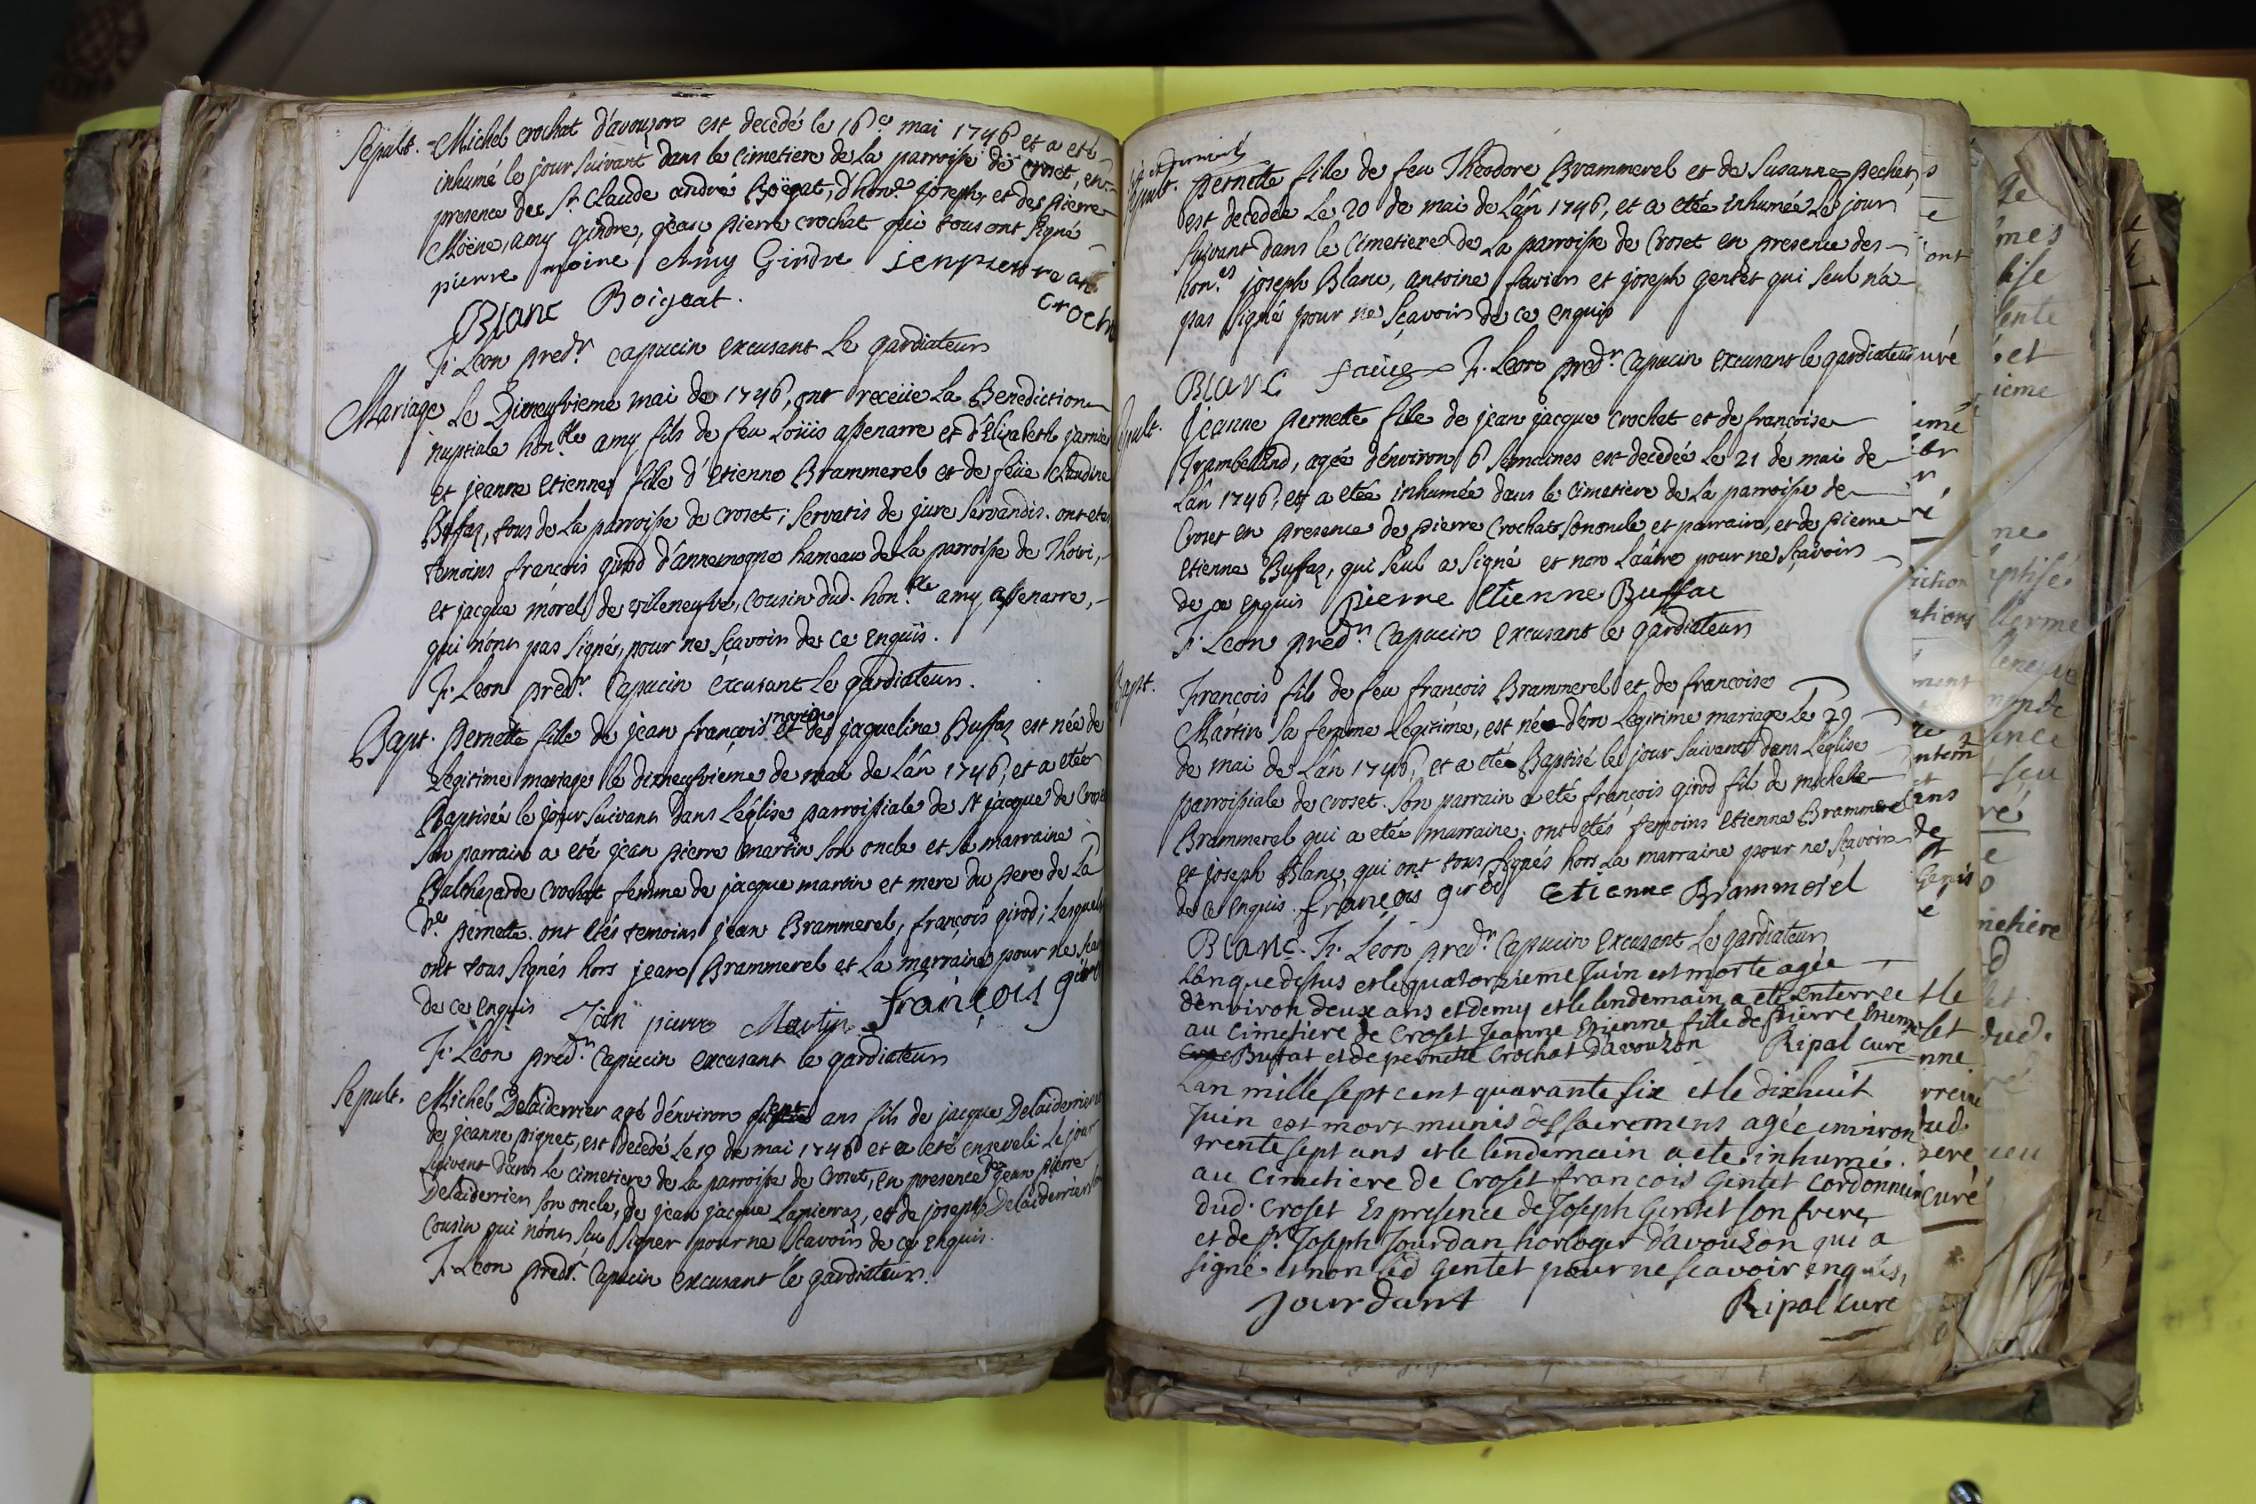 Sepult. Michel Crochat d'avouzon est decedé le 16e mai 1746 et a eté
inhumé le jour suivant dans le cimetiere de la parroisse de Croset, en
presence des Sr. Claude andré Boïgeat, d'hon.e joseph, et de pierre
Moëne, amy gindre, jean pierre crochat qui tous ont signé
pierre moine Amy Gindre jenpierre
Croch
Blanc Boigeat.
Fr. Leon pred.r capucin excusant Le gardiateur
Mariage Le Dixneufvieme mai de 1746, ont receüe La Benediction
nuptiale hon.bles amy fils de feu Loüis assenarre et d'Elizabeth jarnier
et jeanne etienne fille d'etienne Brammerel et de feüe Claudine
Buffaz, tous de La parroisse de Croset; servatis de jure servandis. ont etes
temoins françois girod d'annemogne hameau de La parroisse de Thoiri,
et jacque morel de vileneufve, cousin dud. hon.ble amy assenarre,
qui n'ont pas signés, pour ne sçavoir de ce enquis.
Fr. Leon pred.r Capucin excusant Le gardiateur.
Bapt. Pernette fille de jean françois martin et de jaqueline Buffaz est née de
Legitime mariage le dixneufvieme de mai de L'ân 1746, et a etée
Baptisée le jour suivant dans L'église parroissiale de st jacque de Croset
son parrain a eté jean pierre martin son oncle et sa marraine
Balthezarde Crochat femme de jacque martin et mere du pere de La
d.e pernette. ont etés temoins jean Brammerel, françois girod; lesquels
ont tous signés hors jean Brammerel et La marraine pour ne sca
de ce enquis Jan pierre Martin françois giro
Fr. Léon pred.r Capucin excusant le gardiateur
Sepult. Michel Delaiderrier agé d'environ sept ans fils de jacque Delaiderrier
de jeanne pignet, est decedé Le 19 de mai 1746 et a eté enseveli Le jour
suivant dans Le cimetiere de La parroisse de Croset, en presence de jean pierre
Delaiderrier son oncle, de jean jacque Lapierraz, et de joseph Delaiderrier
cousin qui n'ont scu signer pour ne sçavoir de ce enquis.
Fr. Leon pred.r Capucin excusant le gardiateur.
Sepult. Pernette fille de feu Theodore Brammerel et de Susanne Pechet,
est decedée Le 20 de mai de L'ân 1746, et a etée inhumée Le jour
suivant dans le Cimetiere de La parroisse de Croset en presence des
hon.es joseph Blanc, antoine favier et joseph gentet qui seul n'a
pas signé pour ne sçavoir de ce enquis
Blanc Fr. Leon pred.r Capucin excusant le gardiateur
Sepult. Jeanne Pernette fille de jean jacque Crochet et de françoise
Trambelland, agée d'environ 6 semaines est decedée Le 21 de mai de
L'ân 1746, et a etée inhumée dans le Cimetiere de La parroisse de
Croset en presence de pierre Crochat son oncle et parrain, et de pierre
etienne Buffaz, qui seul a signé et non L'aûtre pour ne sçavoir
de ce enquis Pierre Etienne Buffac
Fr. Leon pred.r Capucin excusant le gardiateur
Bapt. François fils de feu françois Brammerel et de francoise
Martin sa femme Legitime, est né d'en Legitime mariage Le 29
de mai de L'ân 1746, et a eté Baptisé le jour suivant dans L'église
parroissiale de croset. son parrain a eté françois girod fils de michelle
Brammerel qui a etée marraine; ont etés temoins etienne Brammerel
et joseph Blanc, qui ont tous signés hors La marraine pour ne sçavoir
de ce enquis. françois girod etienne Brammerel
Blanc. Fr. Léon pred.r Capucin excusant Le gardiateur
L'an que dessus et le quatorzieme Juin est morte agée
d'environ deux ans et demy et le lendemain a eté Enterree
au Cimetiere de Croset Jeanne Etienne fille de pierre Etienne
Buffat et de pernette Crochat d'avouzon Ripal curé
Lan mille sept cent quarante six et le dixhuit
Juin est mort munis des sacremens agée environ
trente sept ans et le lendemain a ete inhumé
au Cimetiere de Croset francois Gentet Cordonnier
dud. Croset Es presence de Joseph Gentet son frere
et de Sr. Joseph Jourdan horloger d'avouzon qui a
signé et non led Gentet pour ne scavoir enquis,
Jourdant Ripal curé